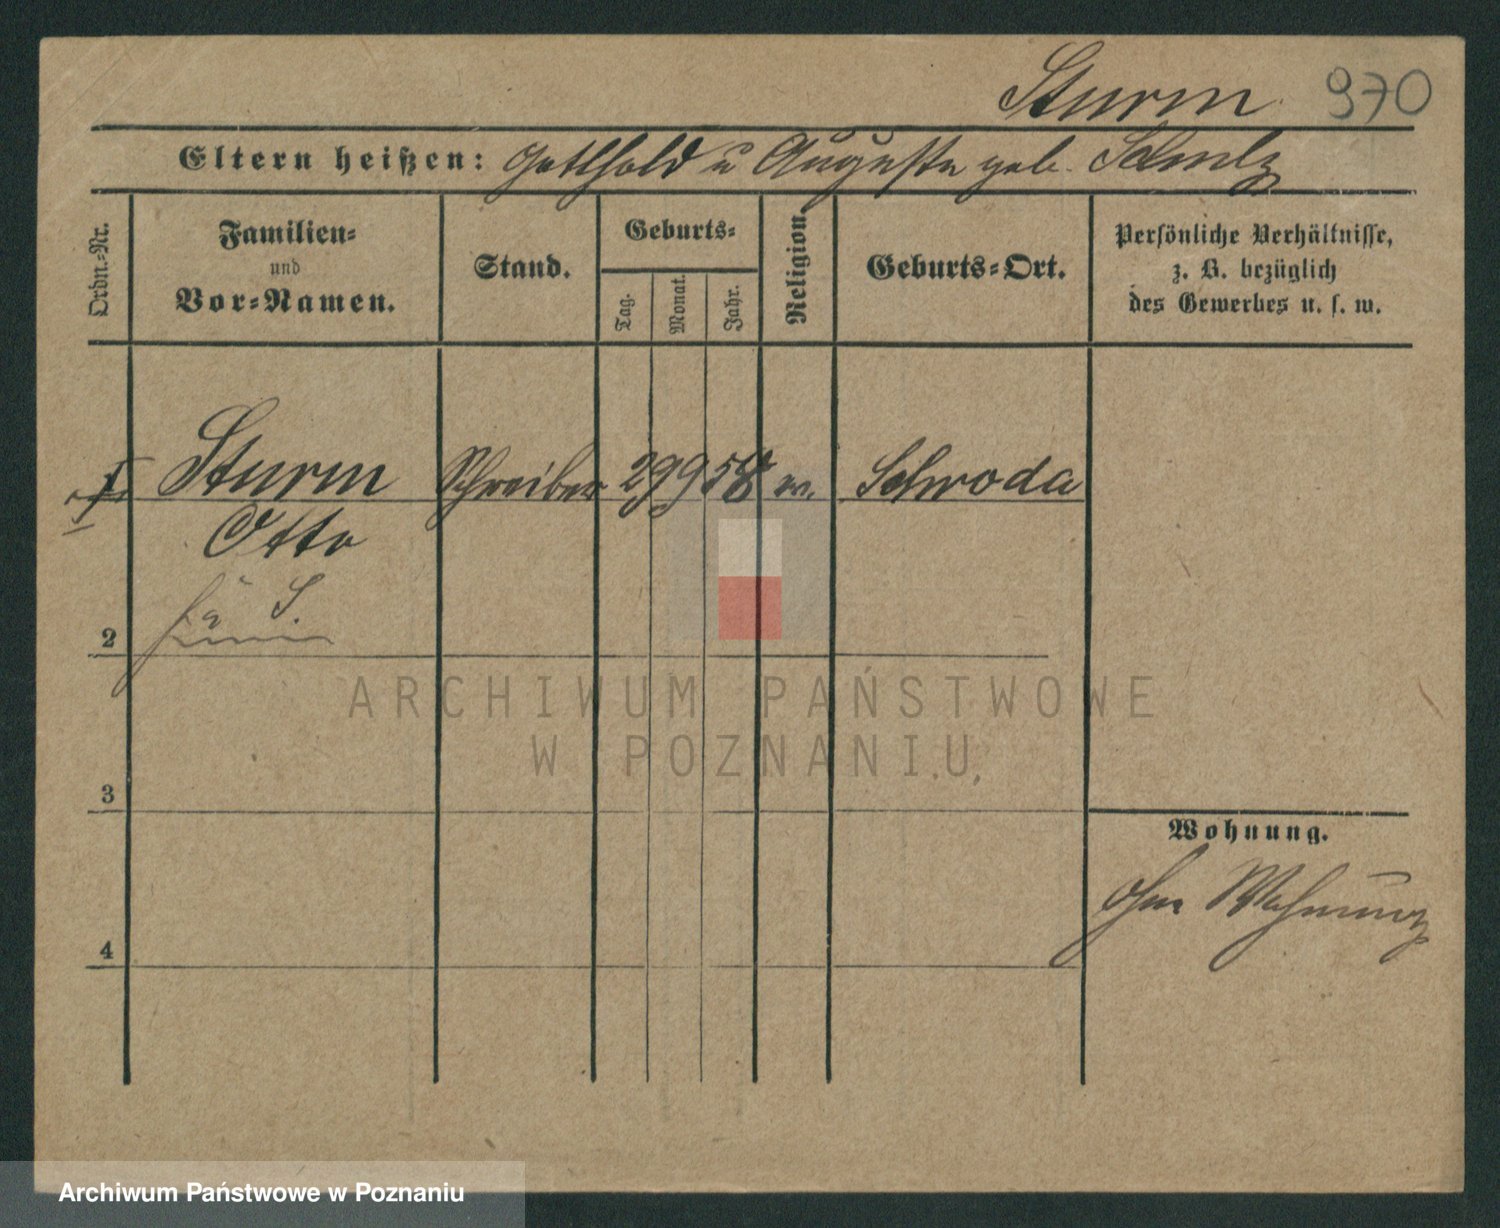 Sturm 970
Eltern heißen: Gotthold u Auguste geb. Schulz
Ordn.-Nr.
Familien-
und
Vor-Namen.
Stand.
Geburts-
Tag.
Monat.
Jahr.
Religion
Geburts-Ort.
Persönliche Verhältnisse,
z. B. bezüglich
des Gewerbes u. s. w.
Sturm Schreiber 29 9 58 ev. Schroda
Otto
2
3
4
Wohnung.
ohne Wohnung
ARCHIWUM PAŃSTWOWE
W POZNANIU
Archiwum Państwowe w Poznaniu